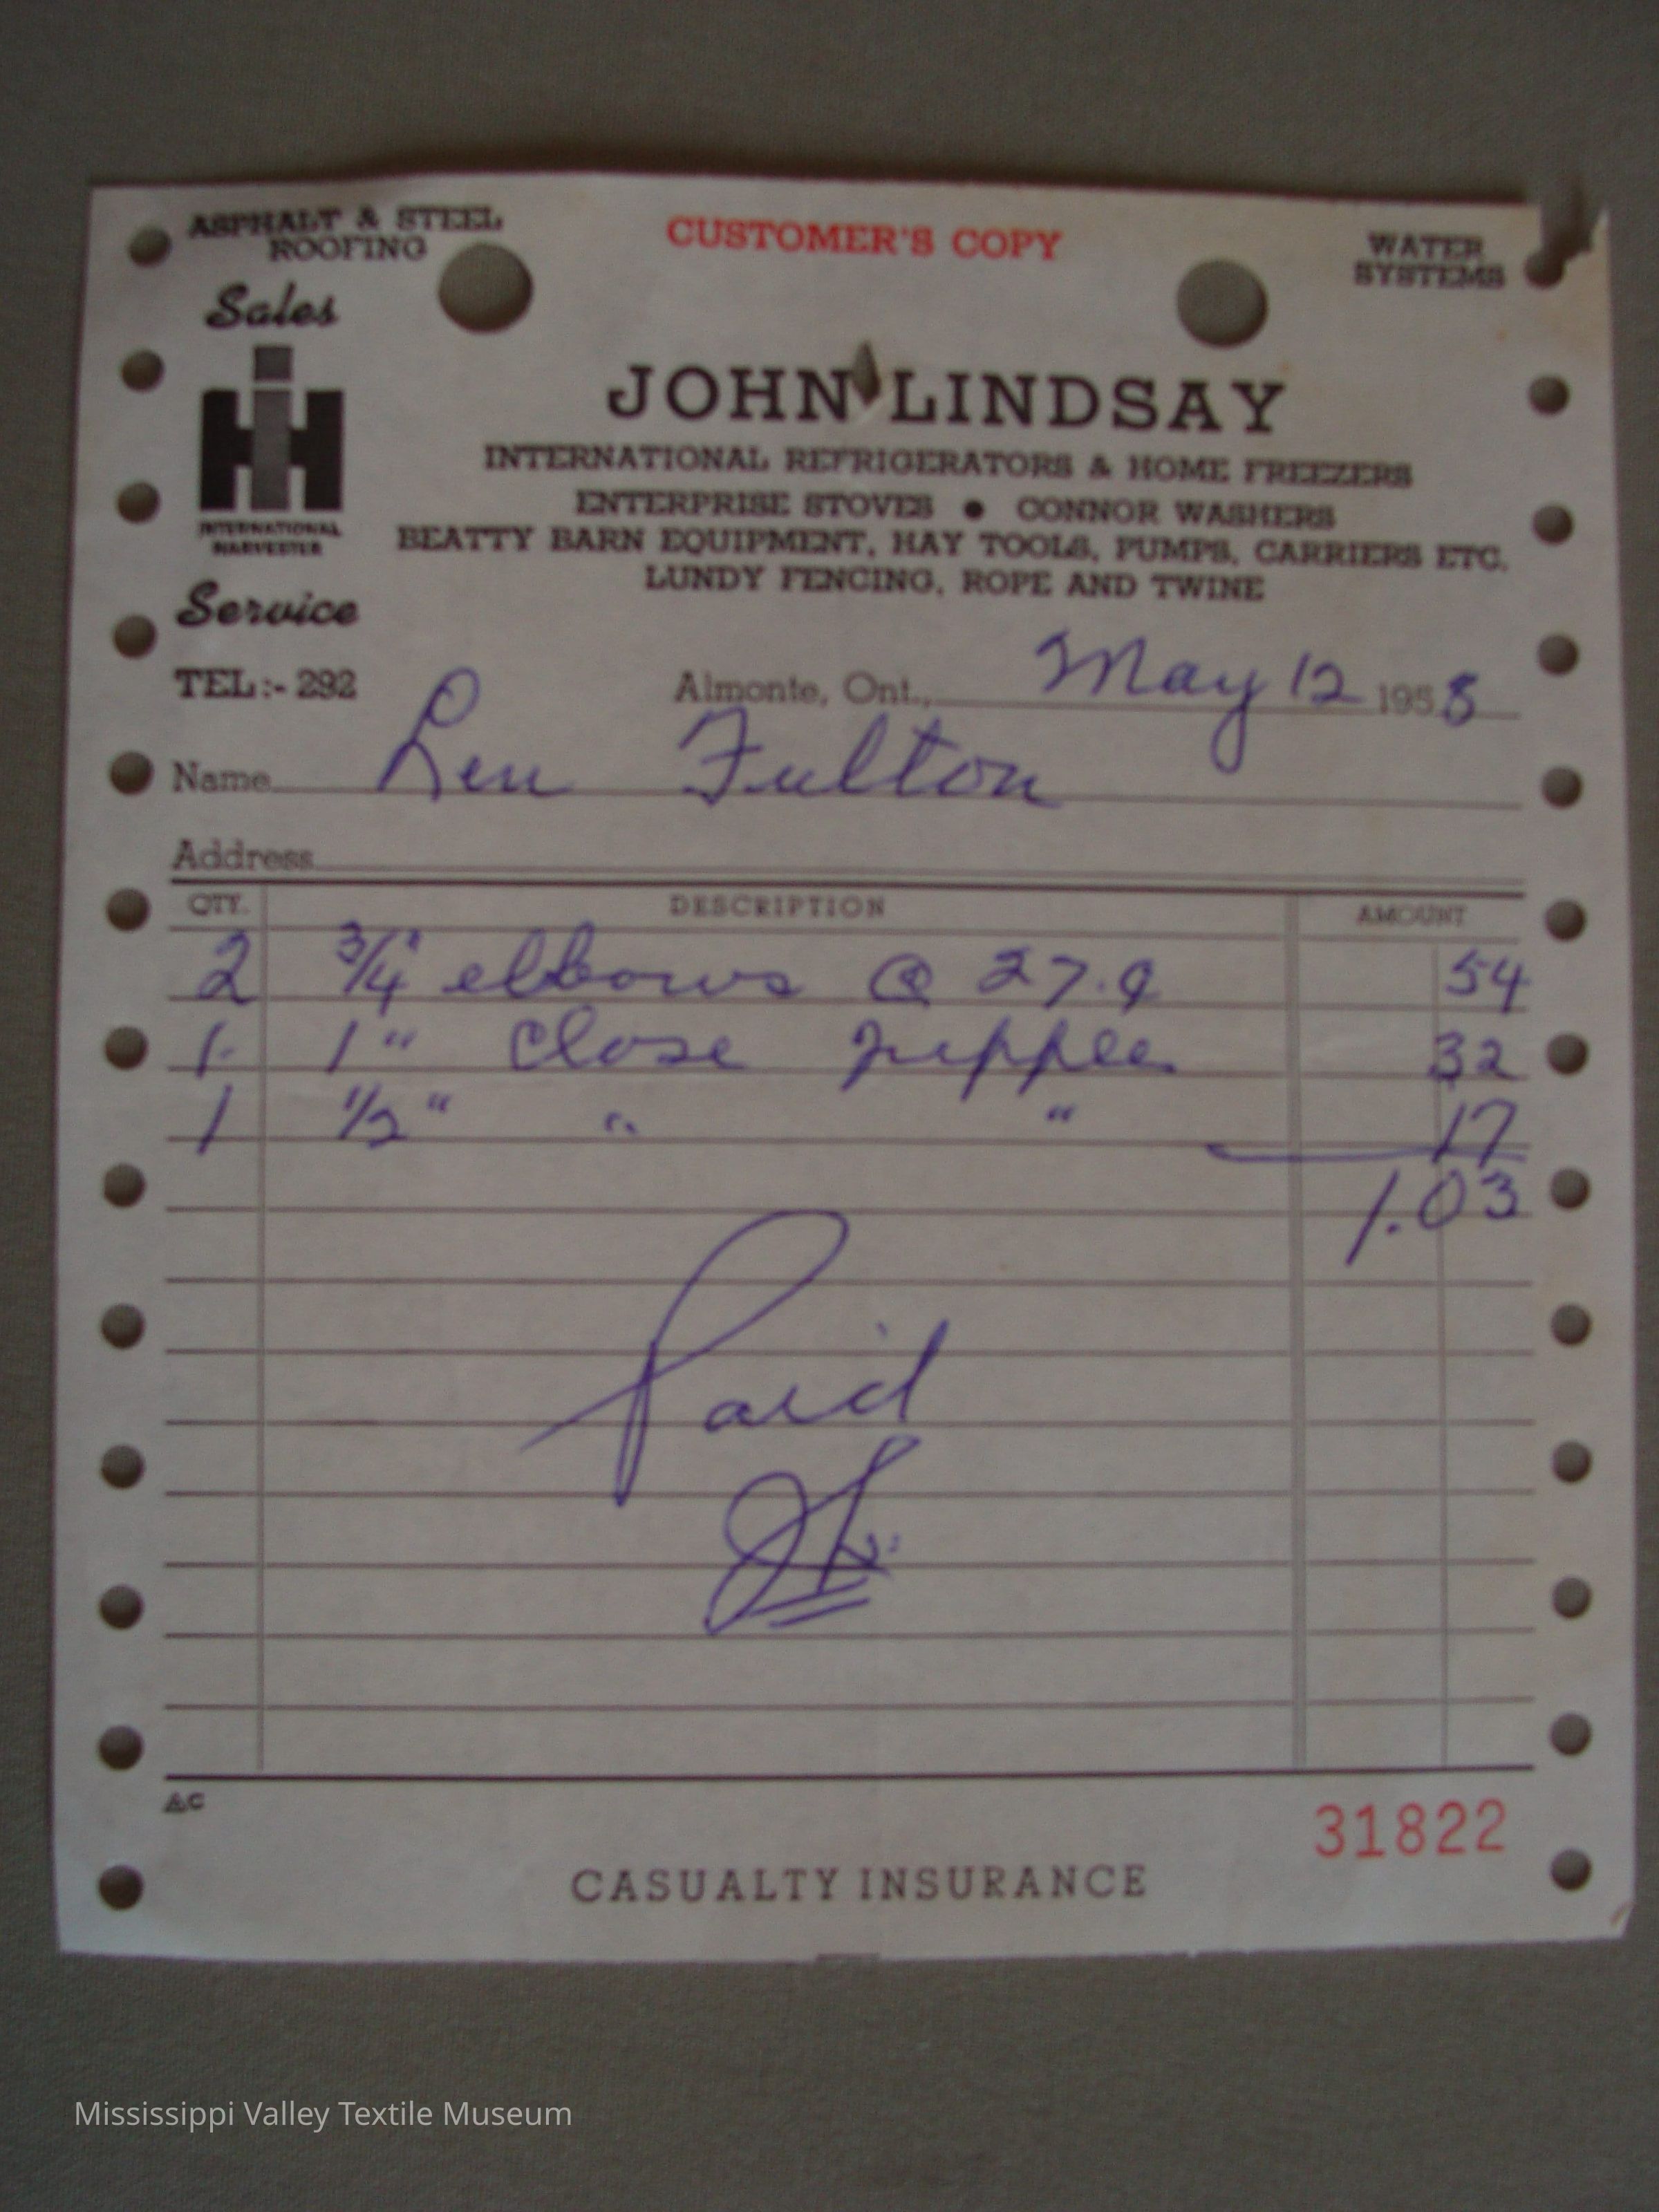 ASPHALT & STEEL
ROOFING
CUSTOMER'S COPY
WATER
SYSTEMS
Sales
IH
INTERNATIONAL
HARVESTER
Service
JOHN LINDSAY
INTERNATIONAL REFRIGERATORS & HOME FREEZERS
ENTERPRISE STOVES ● CONNOR WASHERS
BEATTY BARN EQUIPMENT, HAY TOOLS, PUMPS, CARRIERS ETC.
LUNDY FENCING, ROPE AND TWINE
TEL:- 292 Almonte, Ont., May 12 1958
Name Len Fulton
Address
QTY. DESCRIPTION AMOUNT
2 3/4" elbows @ 27.9 54
1 1" Close 32
1 1/2" " " 17
1.03
Paid
JL
AC
31822
CASUALTY INSURANCE
Mississippi Valley Textile Museum